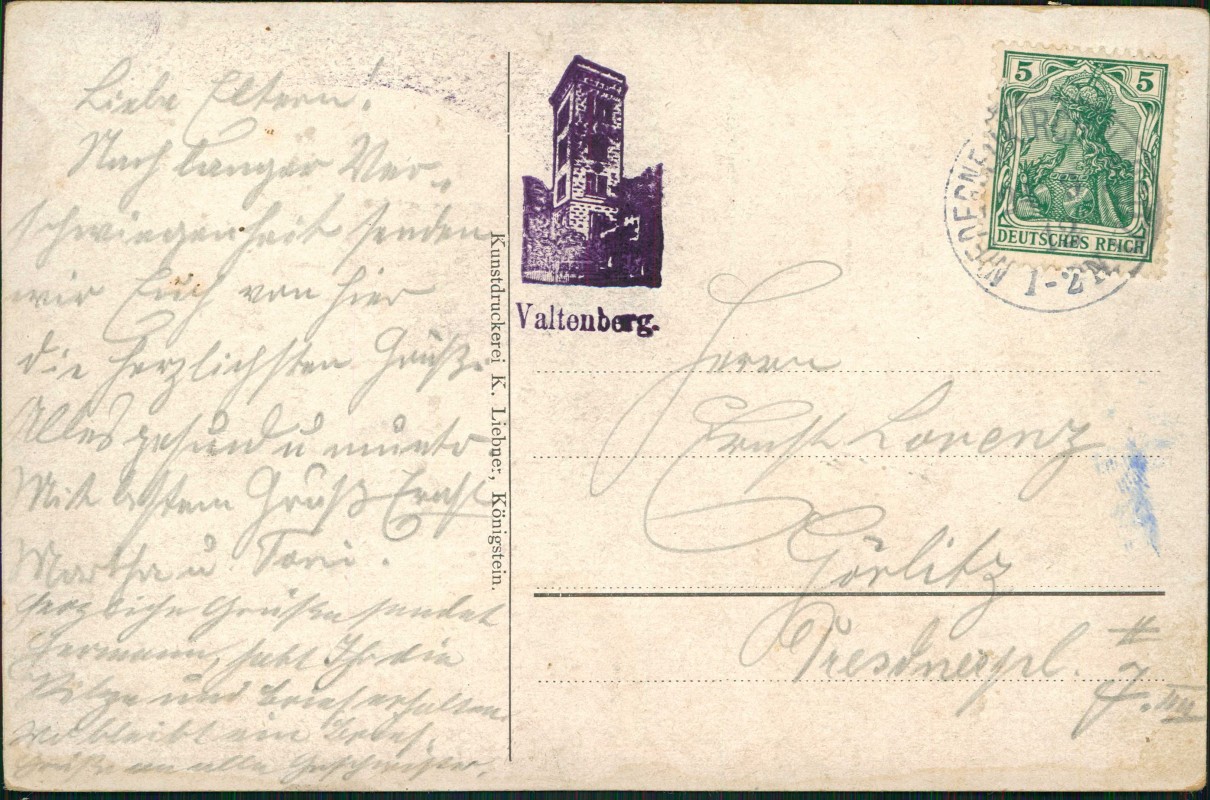 Liebe Eltern!
Nach langer Ver-
schwiegenheit senden
wir Euch von hier
die herzlichsten Grüße.
Alles gesund u munter
Mit bestem Gruß Ernst
Martha u Toni.
herzliche Grüße sendet
Hermann, habt Ihr die
Pilze und Brief erhalten
Wo bleibt ein Brief.
Grüße an alle Geschwister.
Kunstdruckerei K. Liebner, Königstein.
Valtenberg.
5 5
DEUTSCHES REICH
1-2N.
Herrn
Ernst Lorenz
Görlitz
Dresdnerpl. #
7.